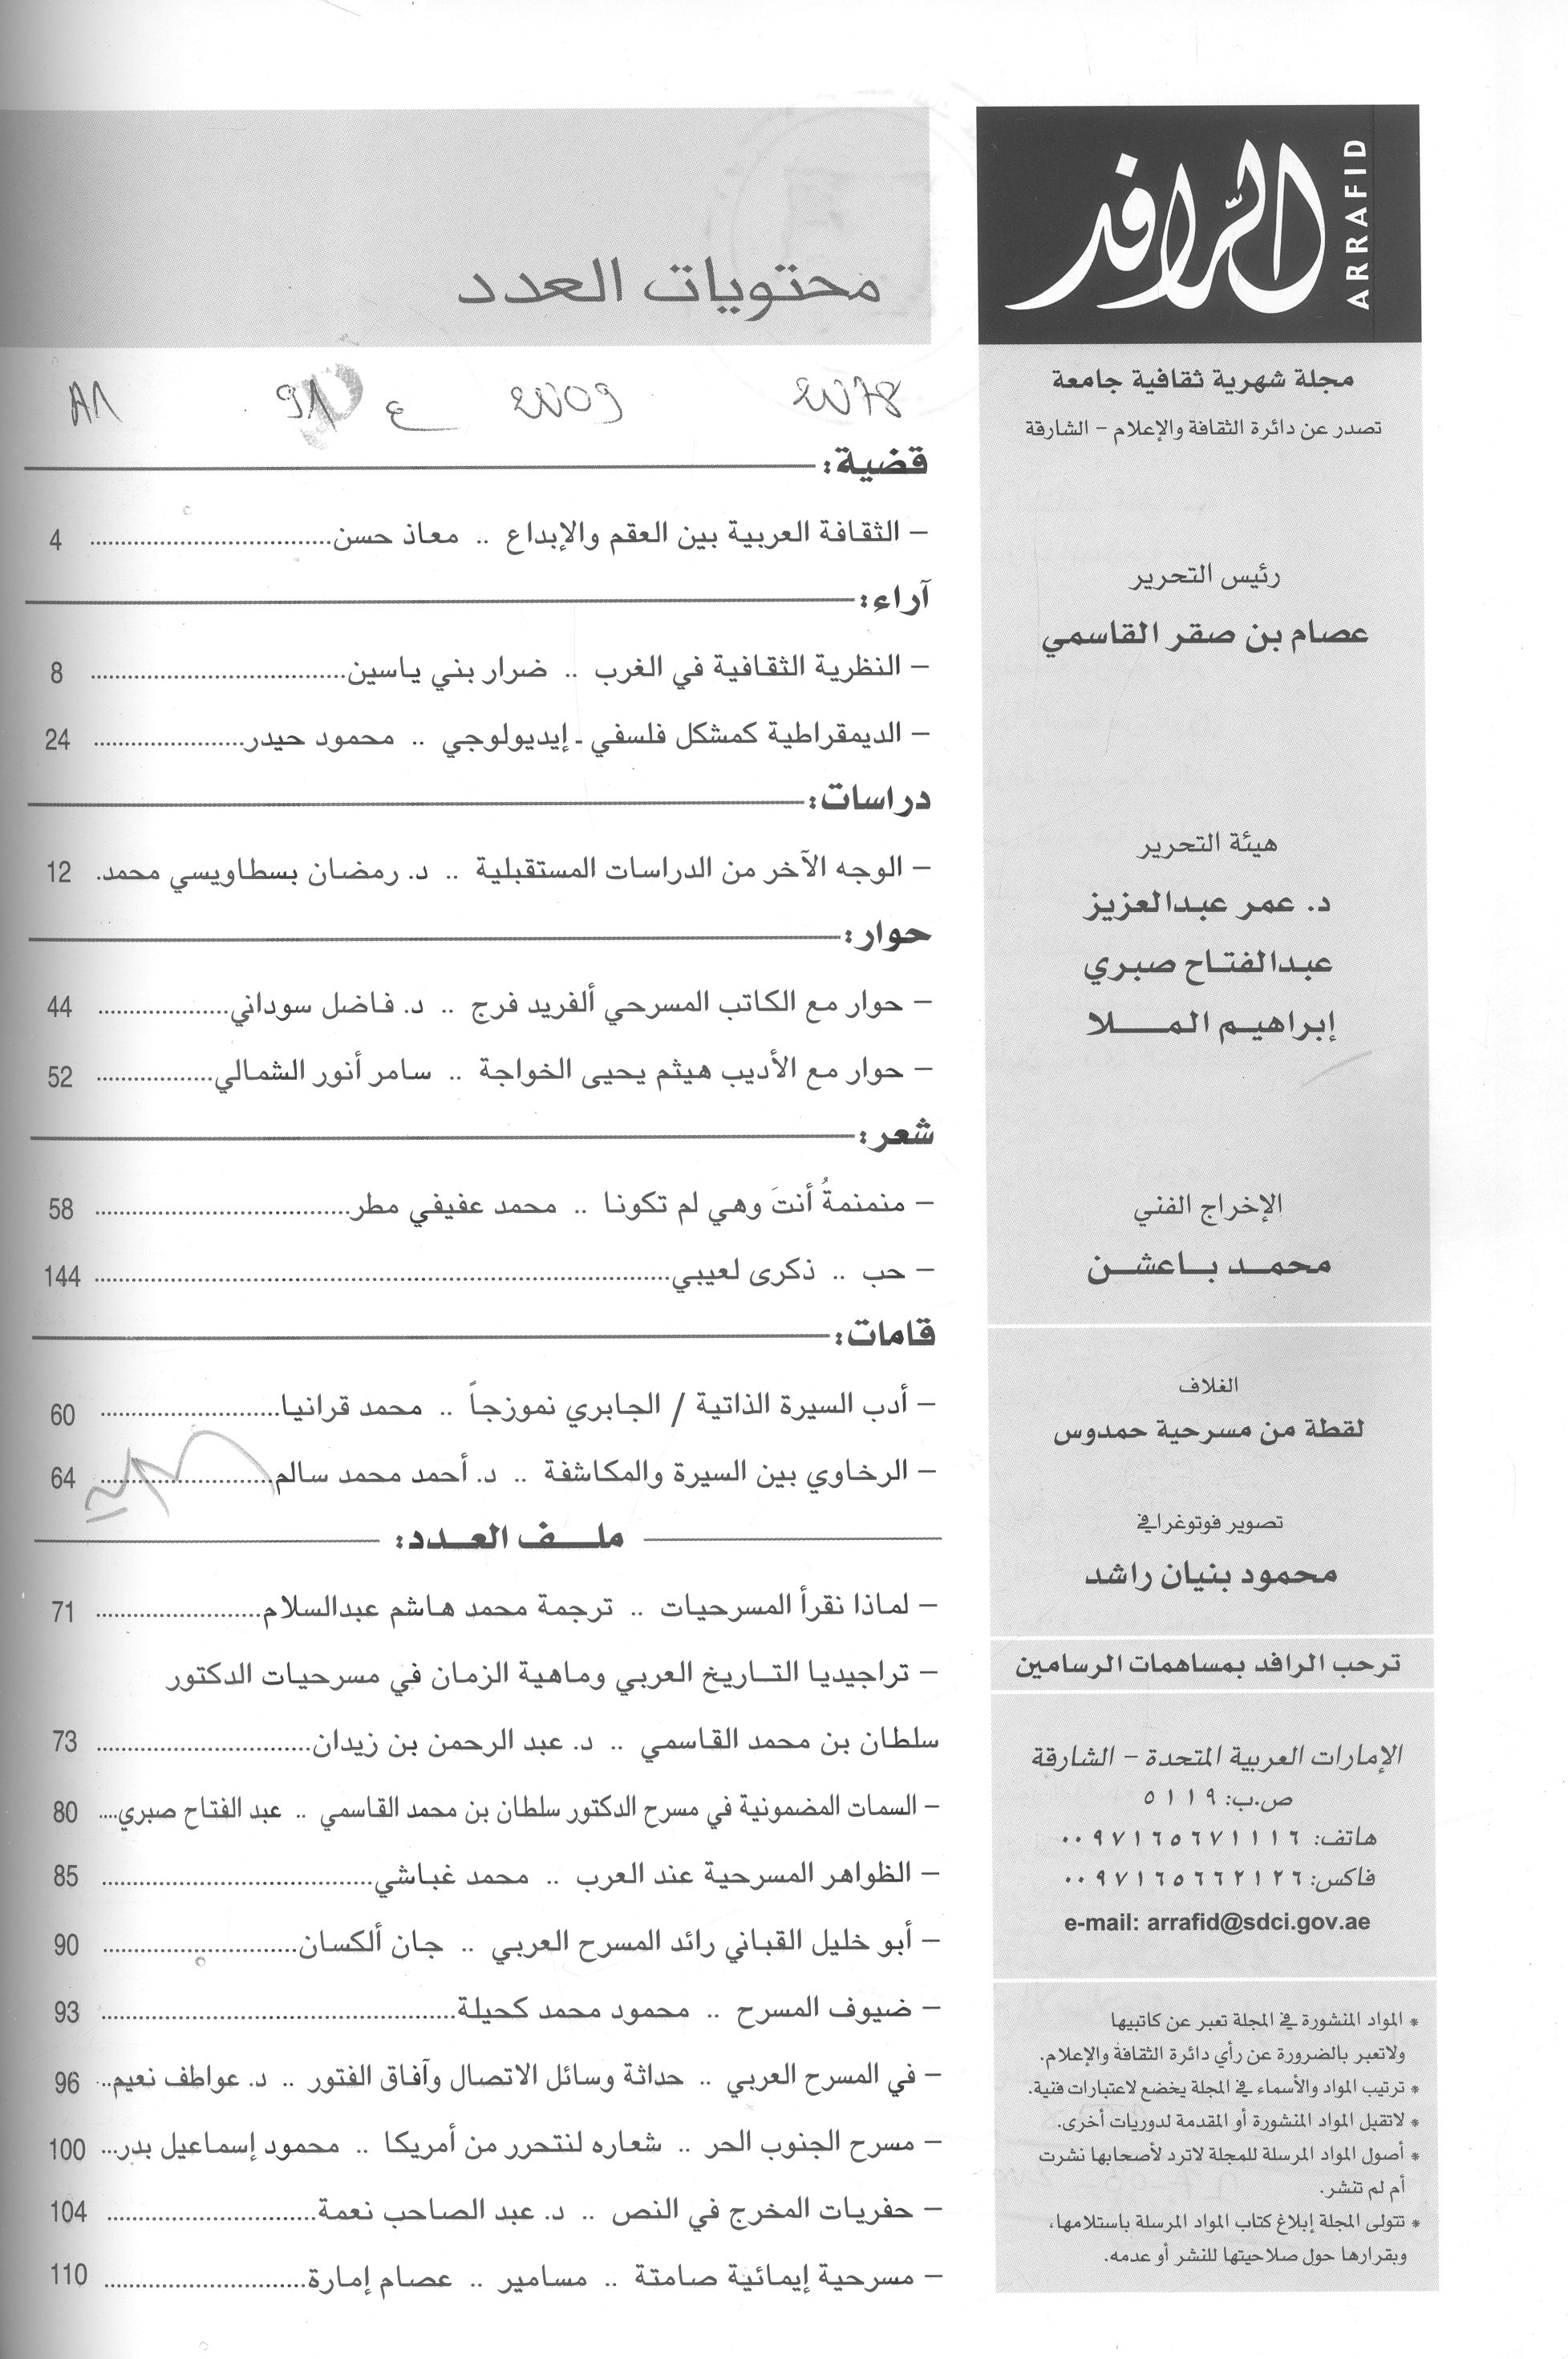 الرافد
ARRAFID
مجلة شهرية ثقافية جامعة
تصدر عن دائرة الثقافة والإعلام – الشارقة
رئيس التحرير
عصام بن صقر القاسمي
هيئة التحرير
د. عمر عبدالعزيز
عبدالفتاح صبري
إبراهيم الملا
الإخراج الفني
محمد باعشن
الغلاف
لقطة من مسرحية حمدوس
تصوير فوتوغرافي
محمود بنيان راشد
ترحب الرافد بمساهمات الرسامين
الإمارات العربية المتحدة – الشارقة
ص.ب: ٥١١٩
هاتف: ٠٠٩٧١٦٥٦٧١١١٦
فاكس: ٠٠٩٧١٦٥٦٦٢١٢٦
e-mail: arrafid@sdci.gov.ae
* المواد المنشورة في المجلة تعبر عن كاتبيها
ولاتعبر بالضرورة عن رأي دائرة الثقافة والإعلام.
* ترتيب المواد والأسماء في المجلة يخضع لاعتبارات فنية.
* لاتقبل المواد المنشورة أو المقدمة لدوريات أخرى.
* أصول المواد المرسلة للمجلة لاترد لأصحابها نشرت
أم لم تنشر.
* تتولى المجلة إبلاغ كتاب المواد المرسلة باستلامها،
وبقرارها حول صلاحيتها للنشر أو عدمه.
محتويات العدد
2078 2009 ع 91 A1
قضية:
– الثقافة العربية بين العقم والإبداع .. معاذ حسن................................. 4
آراء:
– النظرية الثقافية في الغرب .. ضرار بني ياسين................................... 8
– الديمقراطية كمشكل فلسفي - إيديولوجي .. محمود حيدر..................... 24
دراسات:
– الوجه الآخر من الدراسات المستقبلية .. د. رمضان بسطاويسي محمد. 12
حوار:
– حوار مع الكاتب المسرحي ألفريد فرج .. د. فاضل سوداني.................. 44
– حوار مع الأديب هيثم يحيى الخواجة .. سامر أنور الشمالي................ 52
شعر:
– منمنمةُ أنتَ وهي لم تكونا .. محمد عفيفي مطر................................... 58
– حب .. ذكرى لعيبي................................................................................ 144
قامات:
– أدب السيرة الذاتية / الجابري نموزجاً .. محمد قرانيا......................... 60
– الرخاوي بين السيرة والمكاشفة .. د. أحمد محمد سالم........................ 64
ملف العدد:
– لماذا نقرأ المسرحيات .. ترجمة محمد هاشم عبدالسلام....................... 71
– تراجيديا التاريخ العربي وماهية الزمان في مسرحيات الدكتور
سلطان بن محمد القاسمي .. د. عبد الرحمن بن زيدان.............................. 73
– السمات المضمونية في مسرح الدكتور سلطان بن محمد القاسمي .. عبد الفتاح صبري.... 80
– الظواهر المسرحية عند العرب .. محمد غباشي..................................... 85
– أبو خليل القباني رائد المسرح العربي .. جان ألكسان........................... 90
– ضيوف المسرح .. محمود محمد كحيلة................................................. 93
– في المسرح العربي .. حداثة وسائل الاتصال وآفاق الفتور .. د. عواطف نعيم.. 96
– مسرح الجنوب الحر .. شعاره لنتحرر من أمريكا .. محمود إسماعيل بدر... 100
– حفريات المخرج في النص .. د. عبد الصاحب نعمة............................. 104
– مسرحية إيمائية صامتة .. مسامير .. عصام إمارة............................ 110